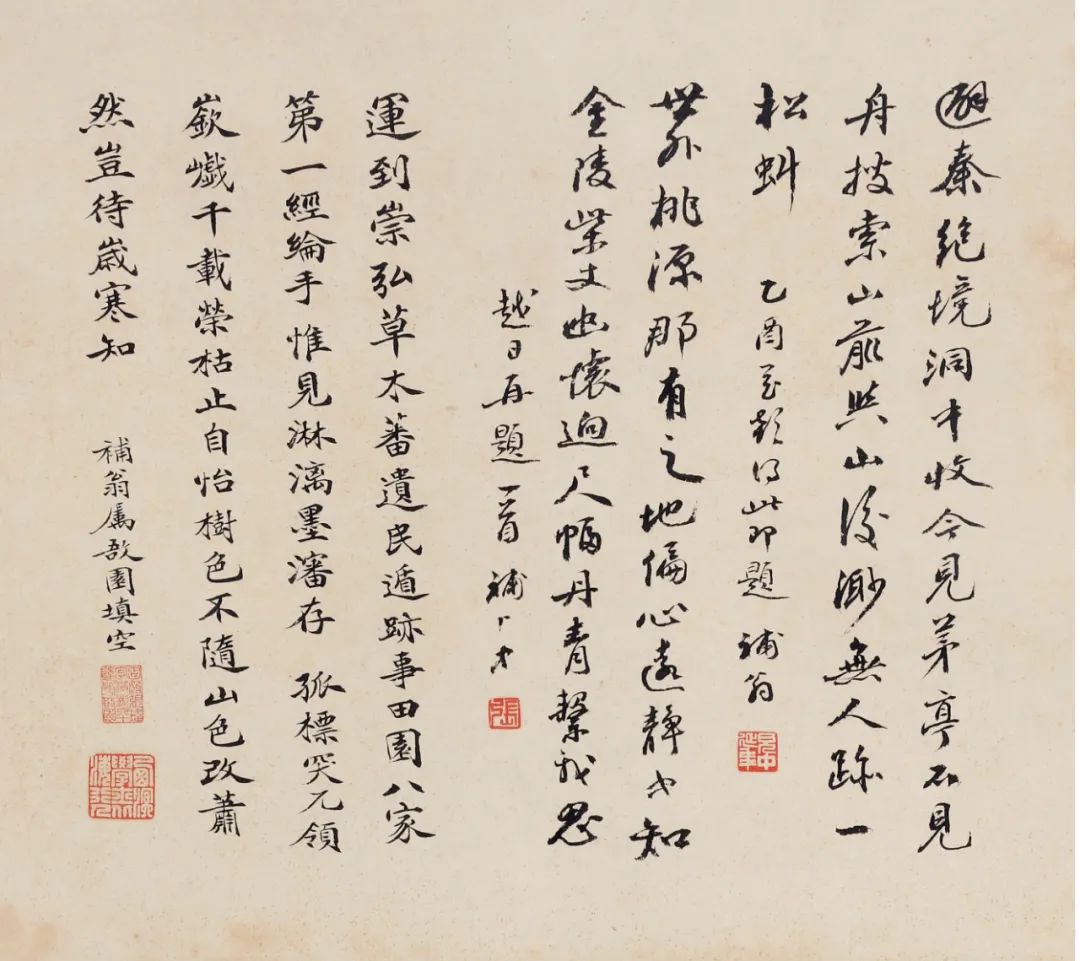 避秦絕境洞中收今見茅亭不見
舟搜索山前與山後渺無人跡一
松虯
乙酉花朝得此即題 補翁
世外桃源那有之地偏心遠靜古知
金陵柴丈幽懷迥尺幅丹青繫我思
越日再題一首 補
運到崇弘草木蕃遺民遁跡事田園八家
第一經綸手惟見淋漓墨瀋存 孤標突兀領
嶔巇千載榮枯止自怡樹色不隨山色改蕭
然豈待歲寒知
補翁屬敔園填空
張